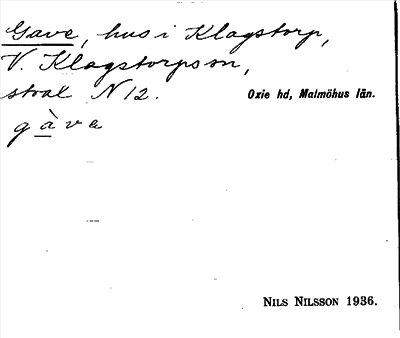 Gave, hus i Klagstorp,
V. Klagstorps sn,
stral N 12.
Oxie hd, Malmöhus län.
gàva
NILS NILSSON 1936.